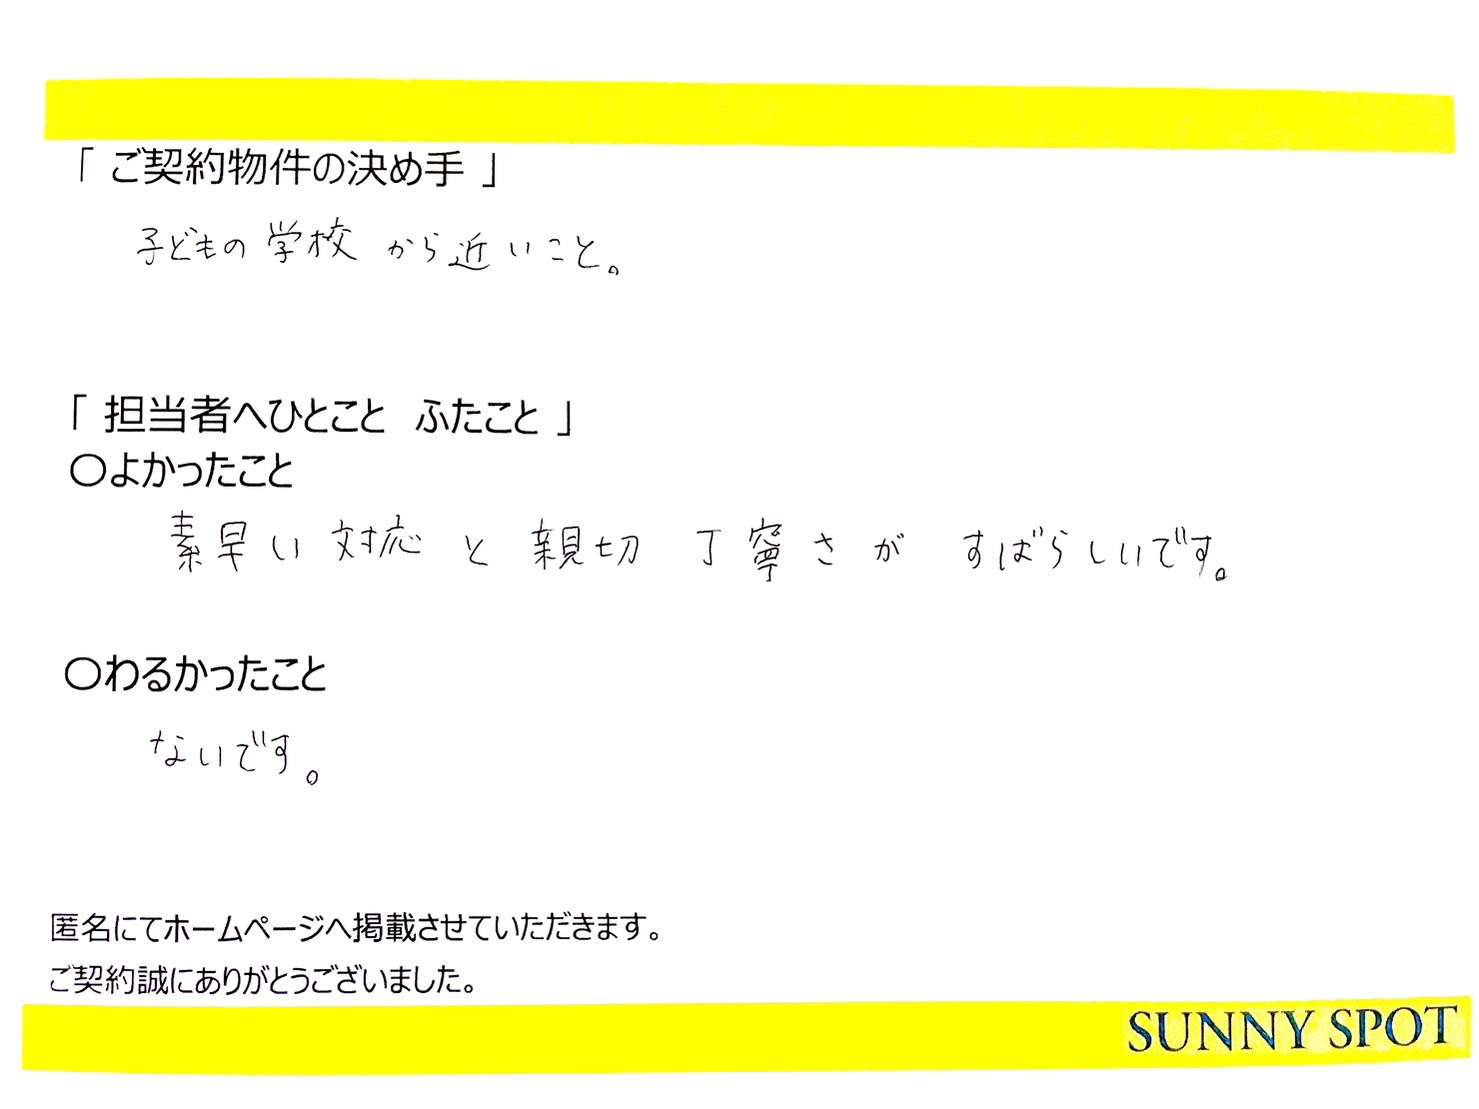 「 ご契約物件の決め手 」
子どもの学校から近いこと。
「 担当者へひとこと　ふたこと 」
〇よかったこと
素早い対応と親切 丁寧さが すばらしいです。
〇わるかったこと
ないです。
匿名にてホームページへ掲載させていただきます。
ご契約誠にありがとうございました。
SUNNY SPOT